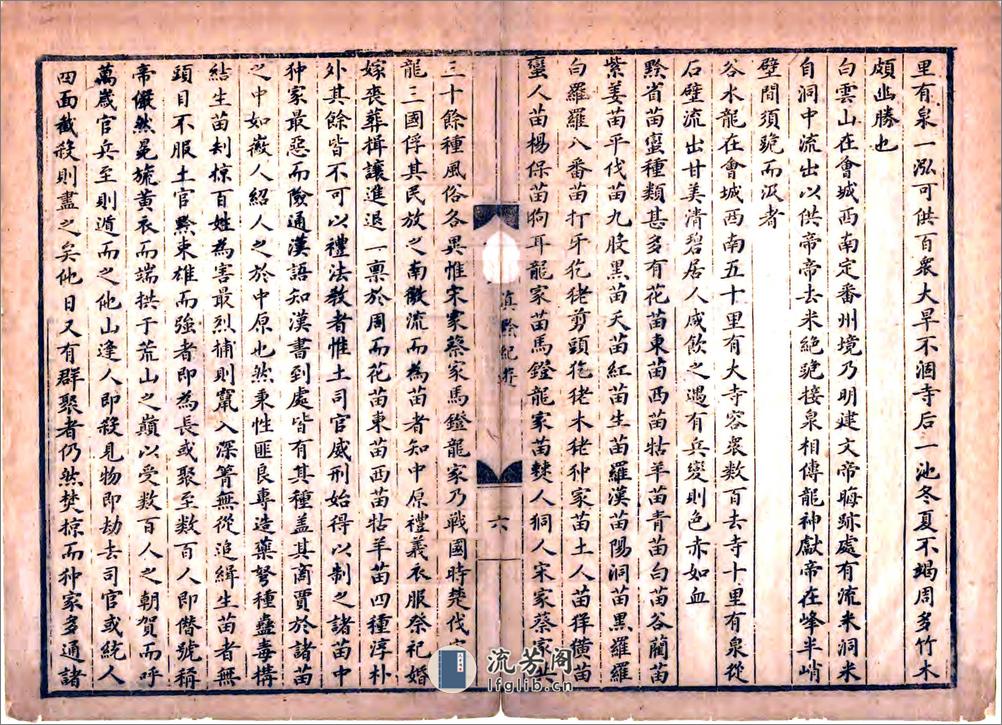 里有泉一泓可供百衆大旱不涸寺后一池冬夏不竭周多竹木
頗幽勝也
白雲山在會城西南定番州境乃明建文帝晦跡處有流来洞米
自洞中流出以供帝帝去米絶貌接泉相傳龍神獻帝在峰半峭
壁間須跪而汲者
谷水龍在會城西南五十里有大寺容衆数百去寺十里有泉從
石壁流出甘美清碧居人咸飲之遇有兵變則色赤如血
黔省苗蠻種類甚多有花苗東苗西苗牯羊苗青苗白苗谷藺苗
紫姜苗平伐苗九股黒苗天苗紅苗生苗羅漢苗陽洞苗黒羅羅
白羅羅八番苗打牙犵狫剪頭犵狫木狫狆家苗土人苗徉獚苗
蠻人苗楊保苗狗耳龍家苗馬鐙龍家苗僰人峒人宋家蔡家
滇黔紀遊
六
三十餘種風俗各異惟宋家蔡家馬鐙龍家乃戰國時楚伐
龍三國俘其民放之南徼流而為苗者知中原禮義衣服祭祀婚
嫁喪葬揖讓進退一禀於周而花苗東苗西苗牯羊苗四種淳朴
外其餘皆不可以禮法教者惟土司官威刑始得以制之諸苗中
狆家最惡而險通漢語知漢書到處皆有其種盖其商賈於諸苗
之中如徽人紹人之於中原也然秉性匪良專造藥弩種蠱毒構
結生苗刦掠百姓為害最烈捕則竄入深箐無從追緝生苗者無
頭目不服土官黔東雄而強者即為長或聚至数百人即僭號稱
帝儼然冕旒黄衣而端拱于荒山之巔以受数百人之朝賀而呼
萬嵗官兵至則遁而之他山逢人即殺見物即劫去司官或統人
四面截殺則盡之矣他日又有群聚者仍然焚掠而狆家多通諸
流芳阁
lfglib.cn